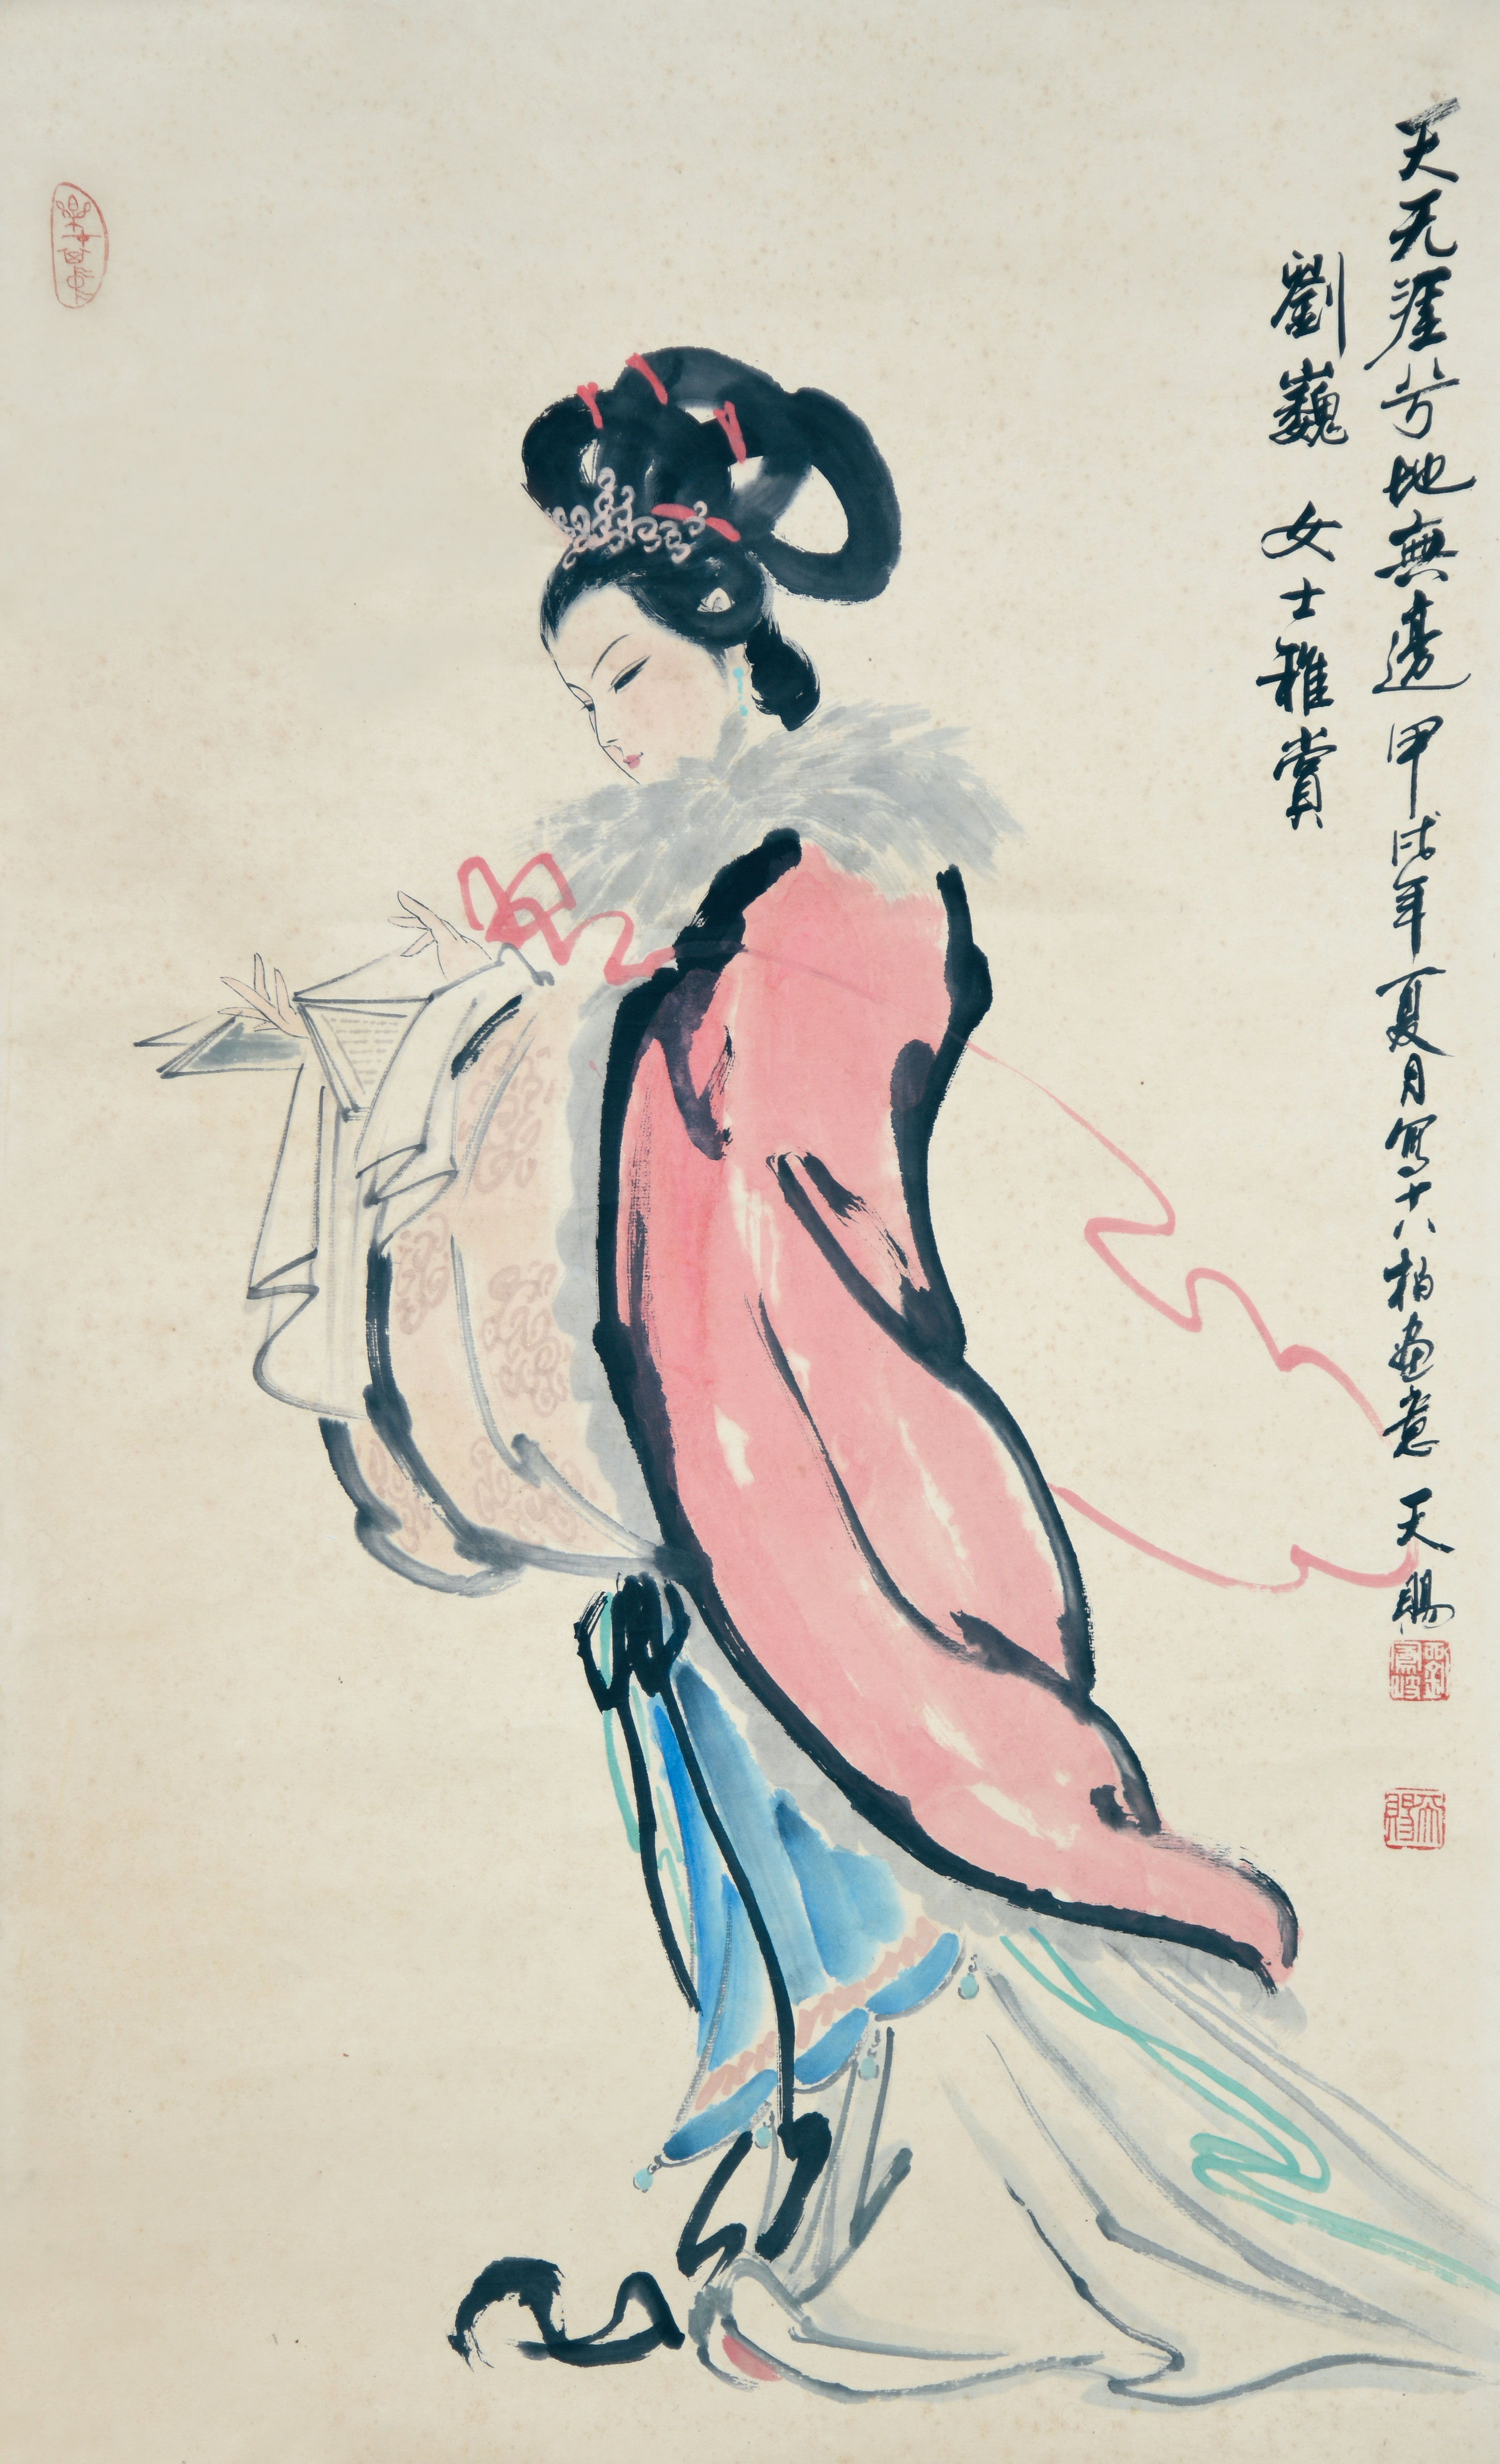 天无涯兮地無邊 甲戌年夏月寫十八拍畫意 天賜
劉巍 女士雅賞